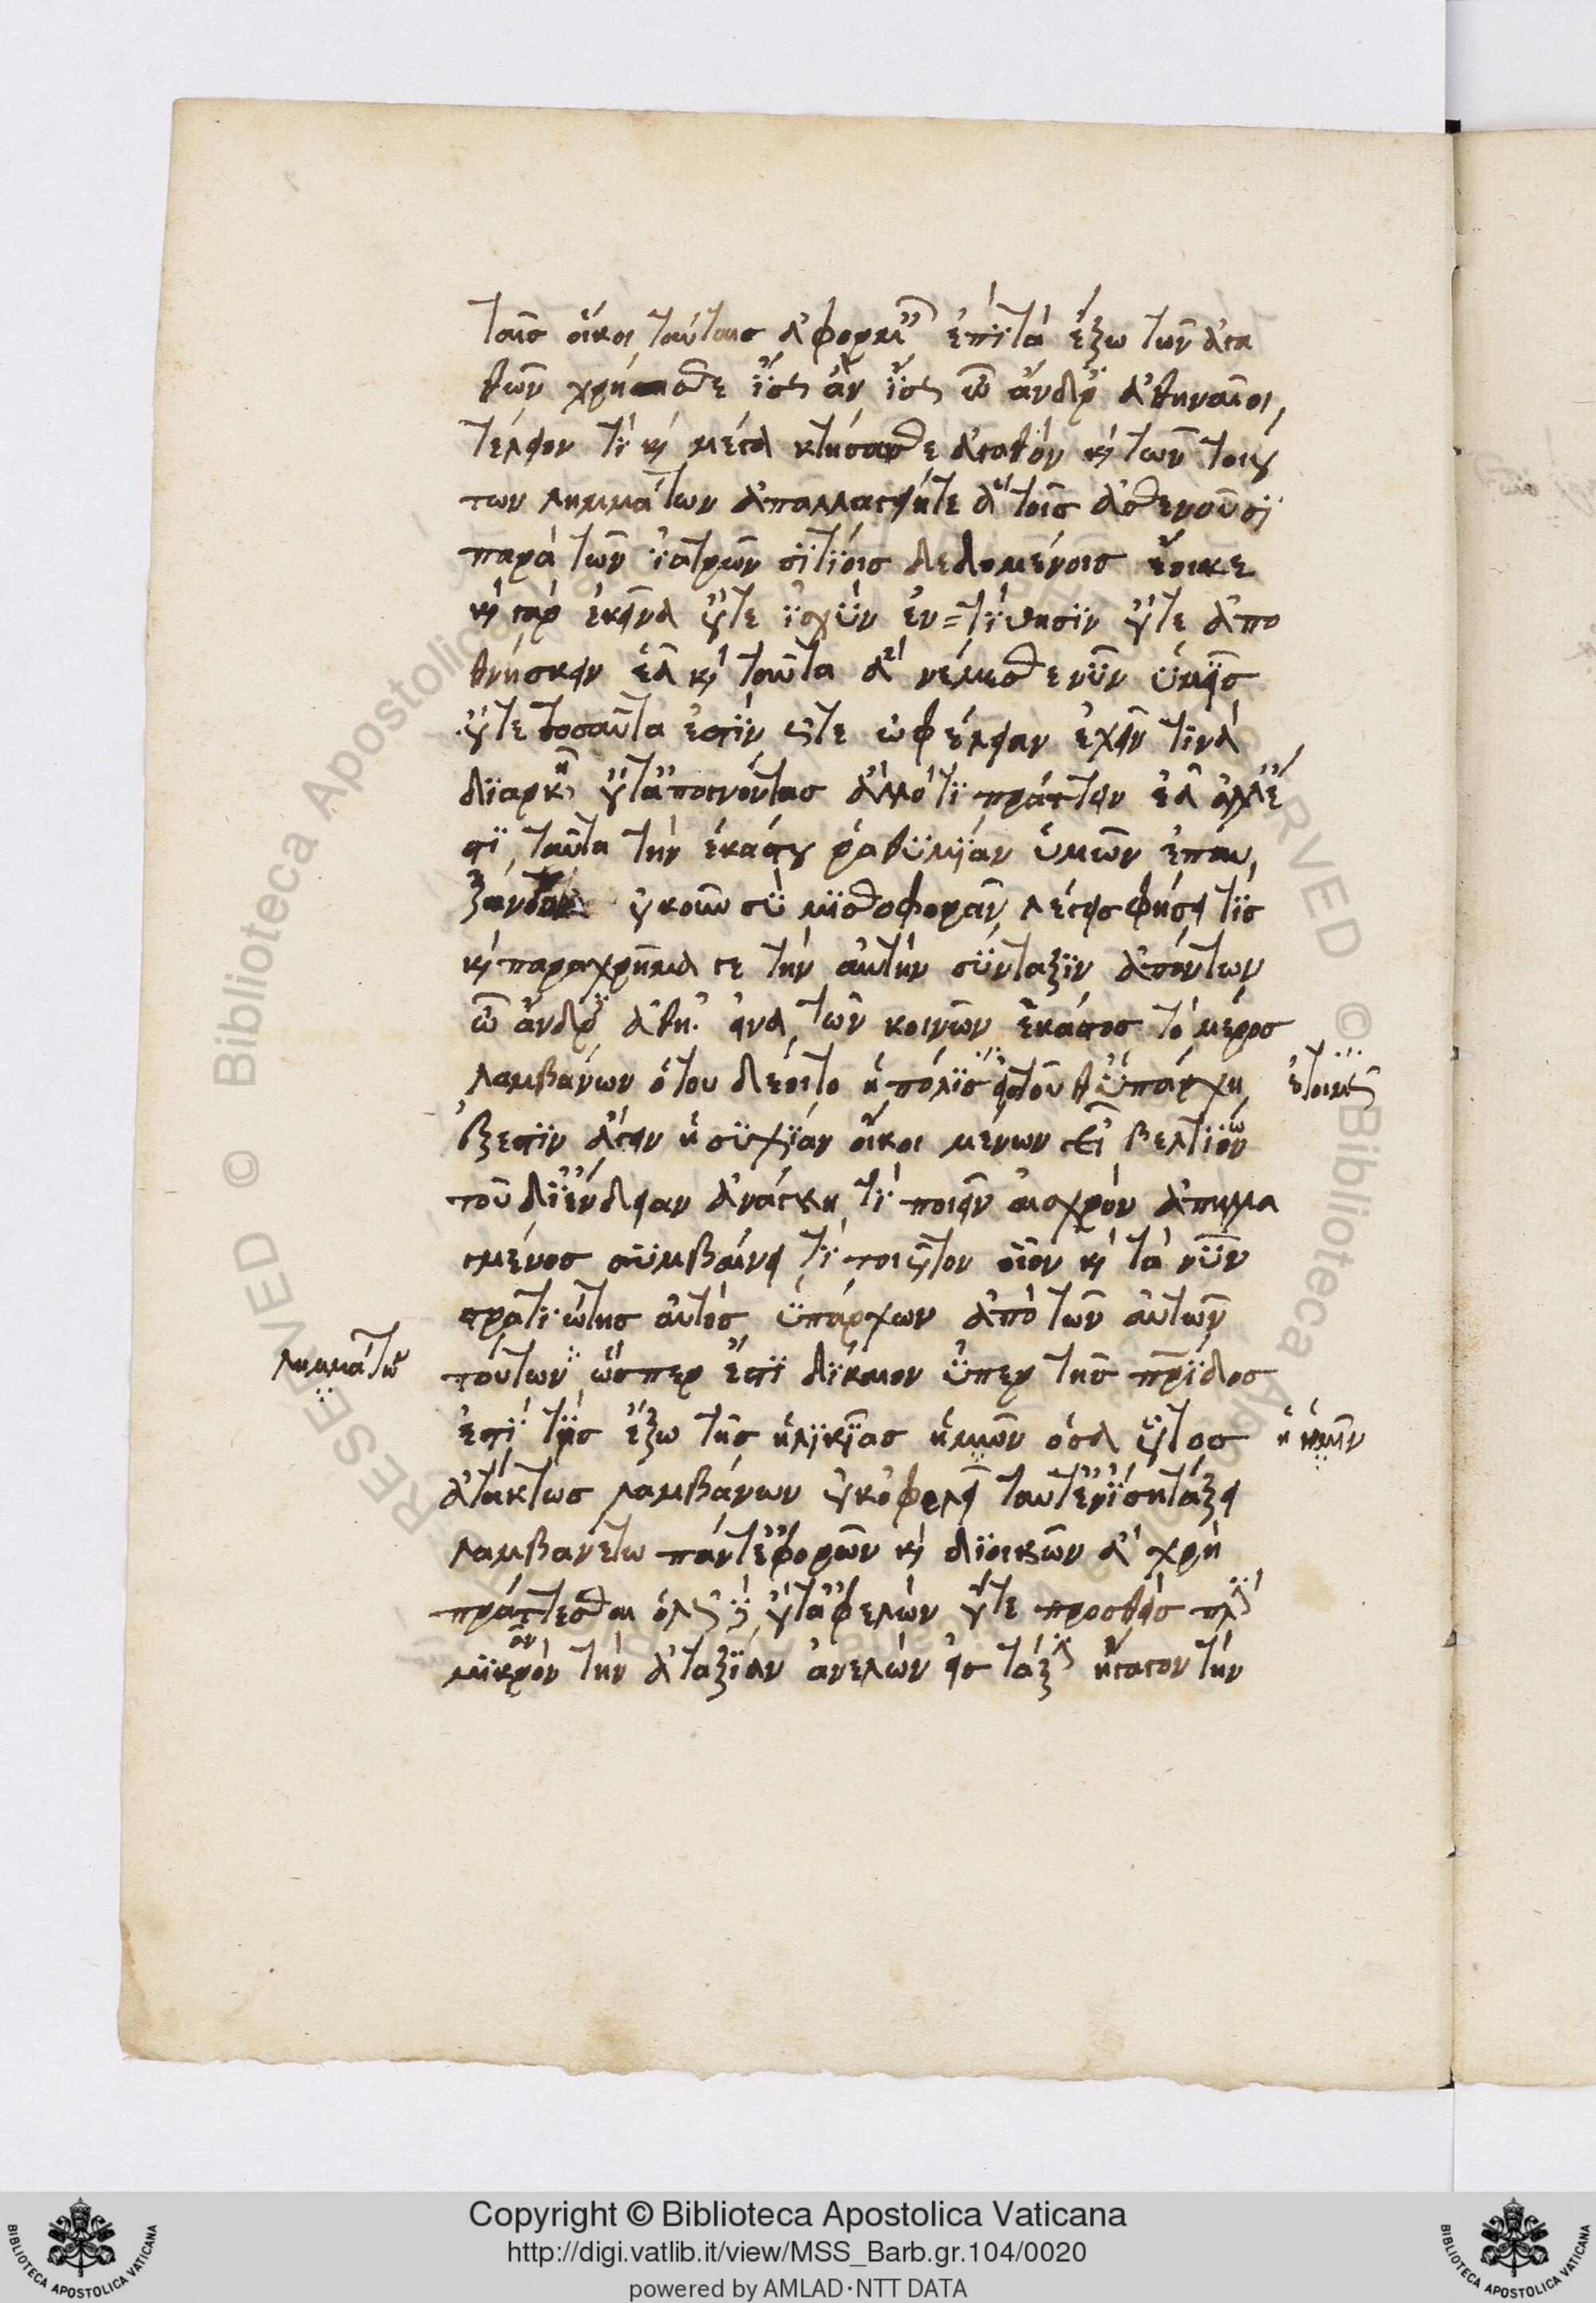 ταῖς οἴκοι ταύταις ἀφορμαῖς ἐπὶ τὰ ἔξω τῶν ἀγα
θῶν χρήσησθε ἴσως ἂν ἴσως ὦ ἄνδρες ἀθηναῖοι,
τέλειόν τι καὶ μέγα κτήσαισθε ἀγαθὸν καὶ τῶν τοιού
των λημμάτων ἀπαλλαγείητε ἃ τοῖς ἀσθενοῦσι
παρὰ τῶν ἰατρῶν σιτίοις διδομένοις ἔοικε
καὶ γὰρ ἐκεῖνα οὔτε ἰσχὺν ἐν=τίθησιν οὔτε ἀπο
θνήσκειν ἐᾶ καὶ ταῦτα ἃ νέμεσθε νῦν ὑμεῖς
οὔτε τοσαῦτα ἐστὶν ὥστε ὠφέλειαν ἔχειν τινὰ
διαρκῆ οὔτ' ἀπογνόντας ἄλλό τι πράττειν ἐᾶ ἀλλ' ἔ
στι ταῦτα τὴν ἑκάστου ῥαθυμίαν ὑμῶν ἐπαυ
ξάνοντα οὐκοῦν σὺ μισθοφορὰν λέγεις φήσει τις
καὶ παραχρῆμά γε τὴν αὐτὴν σύνταξιν ἁπάντων
ὦ ἄνδρες ἀθη. ἵνα τῶν κοινῶν ἕκαστος τὸ μέρος
λαμβάνων ὅτου δέοιτο ἡ πόλις τοῦθ' ὑπάρχη
ἑτοίμως
ἔξεστιν ἄγειν ἡσυχίαν οἴκοι μένων εἶ βελτίων
τοῦ δι' ἔνδειαν ἀνάγκη τι ποιεῖν αἰσχρὸν ἀπηλλα
γμένος συμβαίνει τι τοιοῦτον οἷον καὶ τὰ νῦν
στρατιώτης αὐτὸς ὑπάρχων ἀπὸ τῶν αὐτῶν
λημμάτων
τούτων ὥσπερ ἐστὶ δίκαιον ὑπὲρ τῆς πατρίδος
ἔστι τις ἔξω τῆς ἡλικίας ἡμῶν ὅσα οὗτος
ἢ ἡμῖν
ἀτάκτως λαμβάνων οὐκ ὠφελεῖ ταῦτ' ἐν ἴση τάξει
λαμβανέτω πάντ' ἐφορῶν καὶ διοικῶν ἃ χρὴ
πράττεσθαι ὅλως δὲ οὔτ' ἀφελὼν οὔτε προσθεὶς πλὴν
μικρὸν τὴν ἀταξίαν ἀνελὼν εἰς τάξιν ἤγαγον τὴν
Copyright © Biblioteca Apostolica Vaticana
http://digi.vatlib.it/view/MSS_Barb.gr.104/0020
powered by AMLAD·NTT DATA